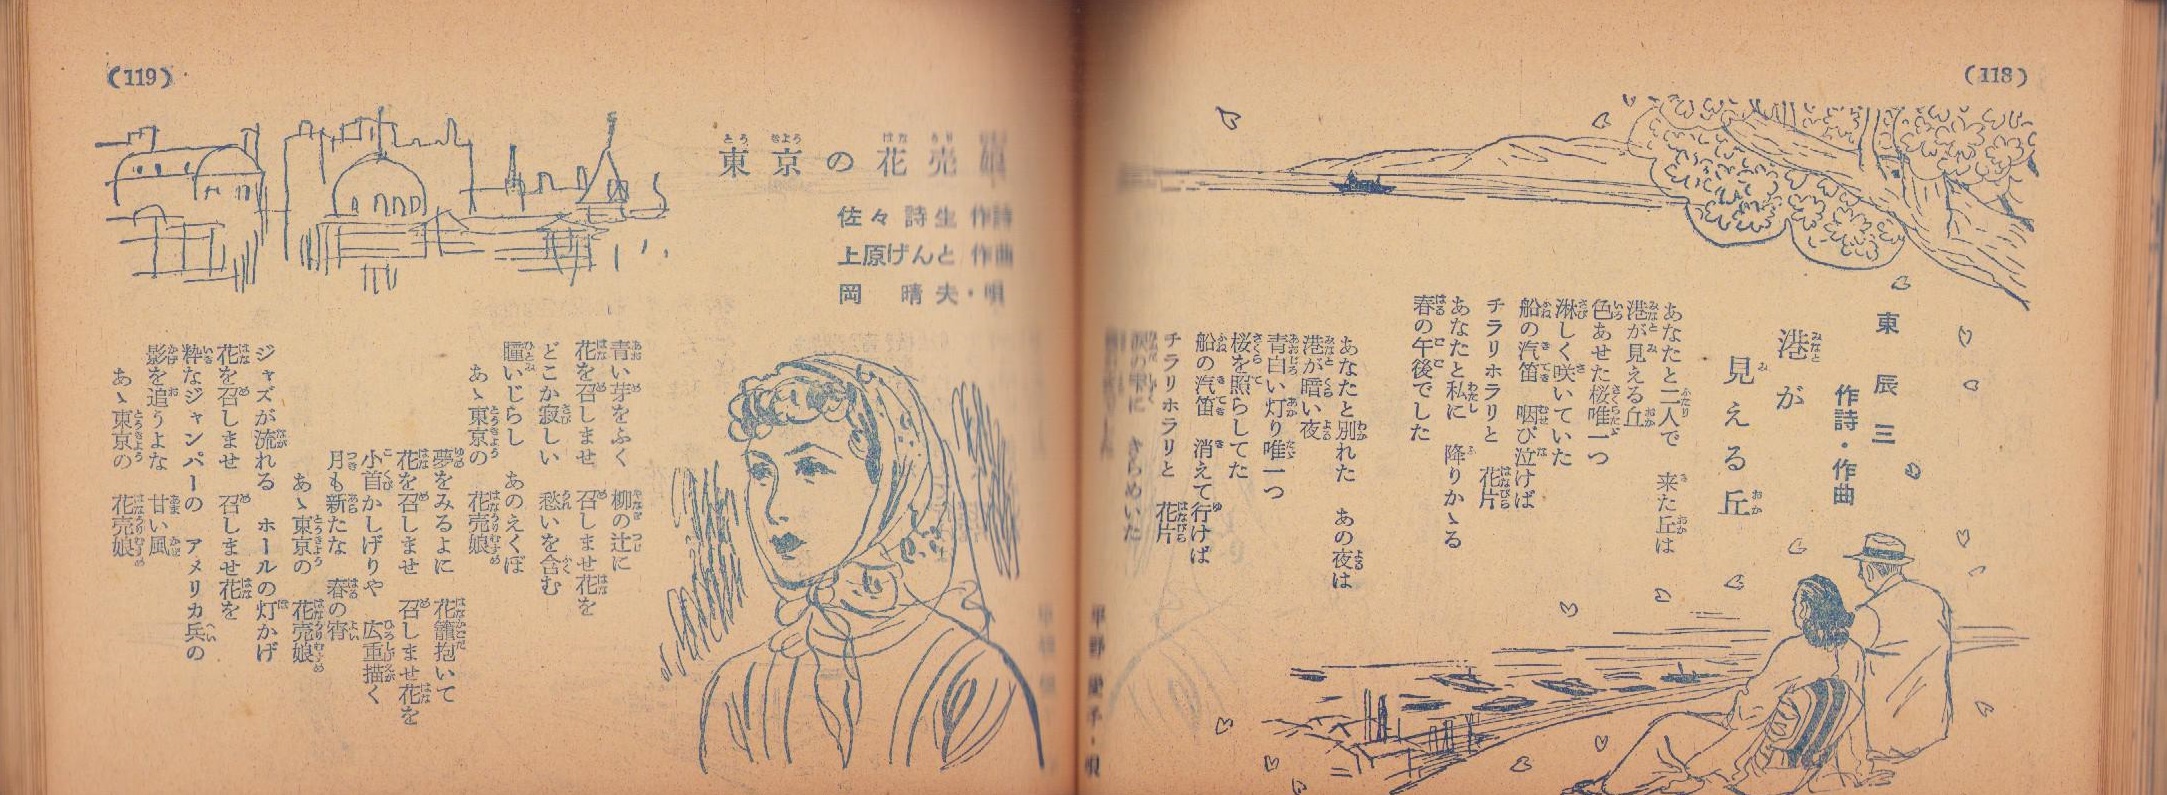 (118)
東辰三
作詩・作曲
港が
見える丘
あなたと二人で 来た丘は
港が見える丘
色あせた桜唯一つ
淋しく咲いていた
船の汽笛 咽び泣けば
チラリホラリと 花片
あなたと私に 降りかゝる
春の午後でした
あなたと別れた あの夜は
港が暗い夜
青白い灯り唯一つ
桜を照らしてた
船の汽笛 消えて行けば
チラリホラリと 花片
の雫に きらめいた
平野愛子・唄
(119)
東京の花売娘
佐々詩生 作詩
上原げんと 作曲
岡 晴夫・唄
青い芽をふく 柳の辻に
花を召しませ 召しませ花を
どこか寂しい 愁いを含む
瞳いじらし あのえくぼ
あゝ東京の 花売娘
夢をみるよに 花籠抱いて
花を召しませ 召しませ花を
小首かしげりや 広重描く
月も新たな 春の宵
あゝ東京の 花売娘
ジャズが流れる ホールの灯かげ
花を召しませ 召しませ花を
粋なジャンパーの アメリカ兵の
影を追うよな 甘い風
あゝ東京の 花売娘